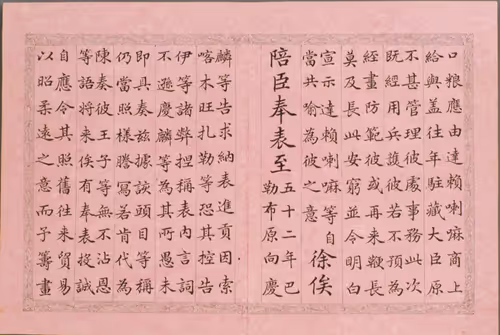 口粮應由達賴喇嘛商上
給與蓋往年駐藏大臣原
不甚管理彼處事務此次
既經用兵護彼若不預為
經畫防範彼或再來鞭長
莫及長此安窮並令明白
宣示達賴喇嘛等自
當共喻為彼之意
徐俟
陪臣奉表至
五十二年巴
勒布原向慶
麟等告求納表進貢因索
喀木旺扎勒等恐其控告
伊等諸弊捏稱表內言詞
不遜慶麟等為其所愚未
即具奏茲據該頭目等稱
仍當照樣謄寫若肯代為
陳奏彼王子等無不沾恩
等語將來俟有奉表投誠
自應令其照舊往來貿易
以昭柔遠之意而予籌畫